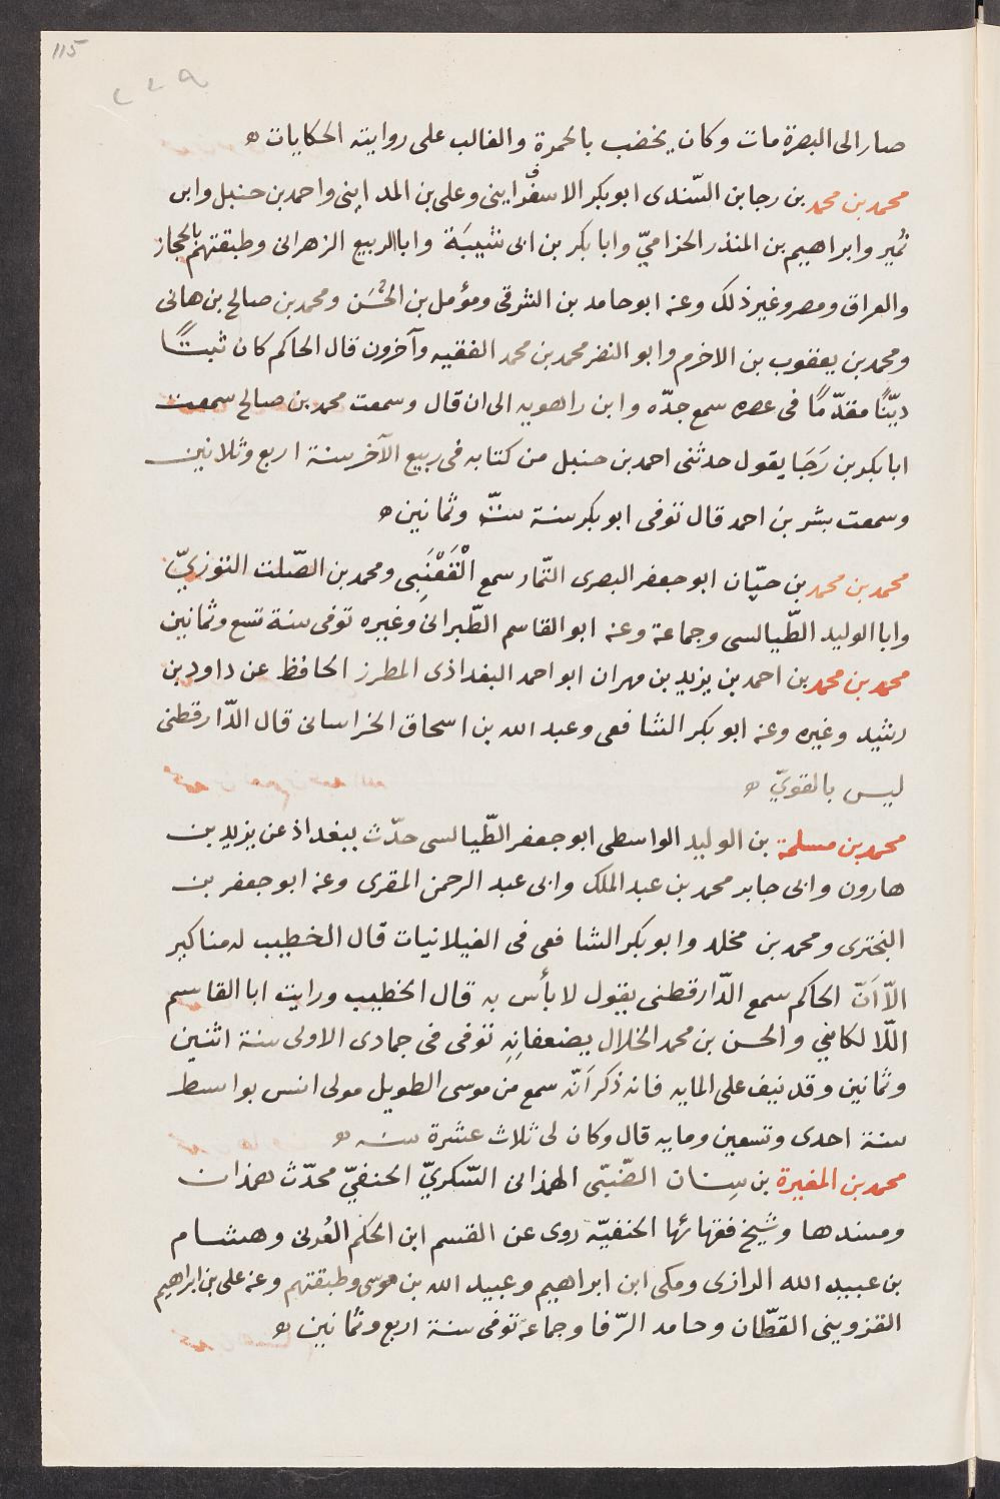 115
٢٢٩
صار الى البصرة مات وكان يخضب بالحمرة والغالب على روايته الحكايات ه
محمد بن محمد بن رجا بن السّندى ابو بكر الاسفراينى وعلى بن المداينى واحمد بن حنبل وابن
نمير وابراهيم بن المنذر الحزاميّ وابا بكر بن ابى شيبَة وابا الربيع الزهرانى وطبقتهم بالحجاز
والعراق ومصر وغير ذلك وعنه ابو حامد بن الشرقى ومؤمل بن الحسَن ومحمد بن صالح بن هانى
ومحمد بن يعقوب بن الاخرم وابو النضر محمد بن محمد الفقيه وآخرون قال الحاكم كان ثبتًا
ديّنًا مقدّمًا فى عصره سمع جدّه وابن راهويه الى ان قال وسمعت محمد بن صالح سمعت
ابا بكر بن رَجَا يقول حدثنى احمد بن حنبل من كتابه فى ربيع الآخر سنة اربع وثلاثين
وسمعت بشر بن احمد قال توفى ابو بكر سنة ستّ وثمانين ه
محمد بن محمد بن حيّان ابو جعفر البصرى التّمار سمع الْقَعْنَبِى ومحمد بن الصّلت التوزيّ
وابا الوليد الطّيالسى وجماعة وعنه ابو القاسم الطّبرانى وغيره توفى سنة تسع وثمانين
محمد بن محمد بن احمد بن يزيد بن مهران ابو احمد البغداذى المطرز الحافظ عن داود بن
رشيد وغيره وعنه ابو بكر الشافعى وعبد الله بن اسحاق الخراسانى قال الدّارقطنى
ليس بالقويّ ه
محمد بن مسلمة بن الوليد الواسطى ابو جعفر الطّيالسى حدّث ببغداذ عن يزيد بن
هارون وابى جابر محمد بن عبد الملك وابى عبد الرحمن المقرى وعنه ابو جعفر بن
البخترى ومحمد بن مخلد وابو بكر الشافعى فى الغيلانيات قال الخطيب له مناكير
الاّ اَنّ الحاكم سمع الدّارقطنى يقول لا بأس به قال الخطيب ورايت ابا القاسم
اللّالكايي والحسن بن محمد الخلال يضعفانِهِ توفى فى جمادى الاولى سنة اثنين
وثمانين وقد نيف على المايه فانه ذكر اَنّه سمع من موسى الطويل مولى انس بواسط
سنة احدى وتسعين ومايه قال وكان لى ثلاث عشرة سنه ه
محمد بن المغيرة بن سِنان الضّبّى الهمذانى السّكريّ الحنفيّ محدّث همذان
ومسندها وشيخ فقهائها الحنفيّه روى عن القسم ابن الحكم العُرنى وهشام
بن عبيد الله الرازى ومكى ابن ابراهيم وعبيد الله بن موسى وطبقتهم وعنه على بن ابراهيم
القزوينى القطّان وحامد الرّفا وجماعة توفى سنة اربع وثمانين ه